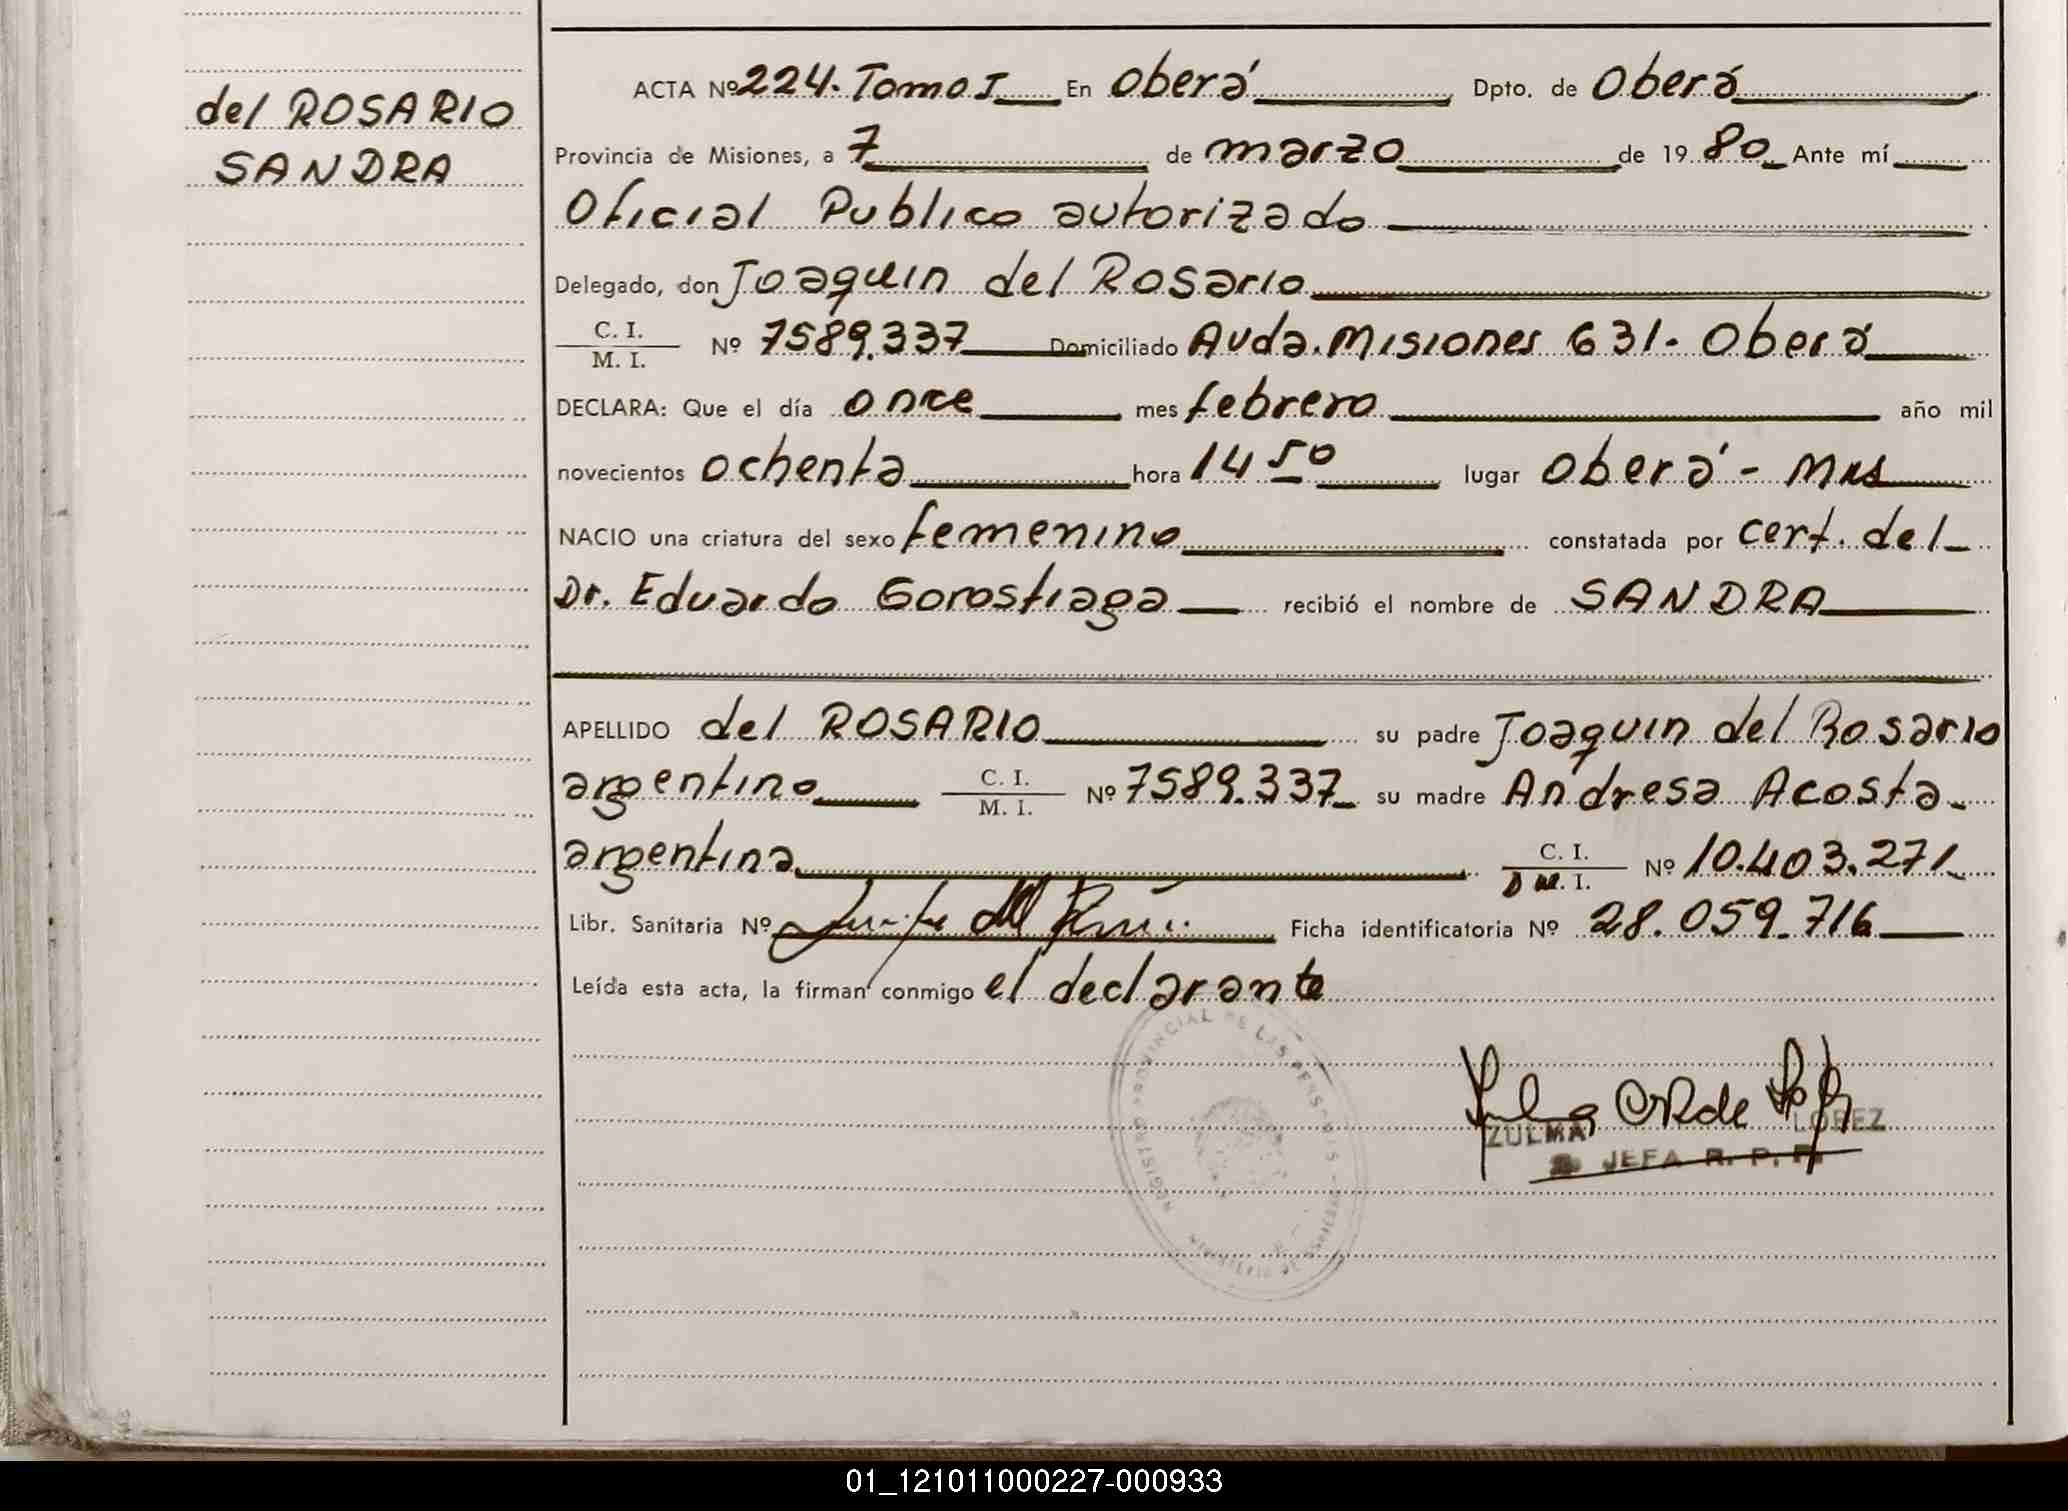 del ROSARIO
SANDRA
ACTA Nº 224. Tomo I En Oberá Dpto. de Oberá
Provincia de Misiones, a 7 de marzo de 1980 Ante mí
Oficial Publico autorizado
Delegado, don Joaquin del Rosario
C. I.
M. I. Nº 7589.337 Domiciliado Avda. Misiones 631. Oberá
DECLARA: Que el día once mes febrero año mil
novecientos ochenta hora 14 50 lugar Oberá - Mns
NACIO una criatura del sexo femenino constatada por cert. del
Dr. Eduardo Gorostiaga recibió el nombre de SANDRA
APELLIDO del ROSARIO su padre Joaquin del Rosario
argentino C. I. M. I. Nº 7589.337 su madre Andresa Acosta
argentina C. I. D M. I. Nº 10.403.271
Libr. Sanitaria Nº Ficha identificatoria Nº 28.059.716
Leída esta acta, la firman conmigo el declarante
REGISTRO PROVINCIAL DE LAS PERSONAS
ZULMA LOPEZ
JEFA R. P. P.
01_121011000227-000933